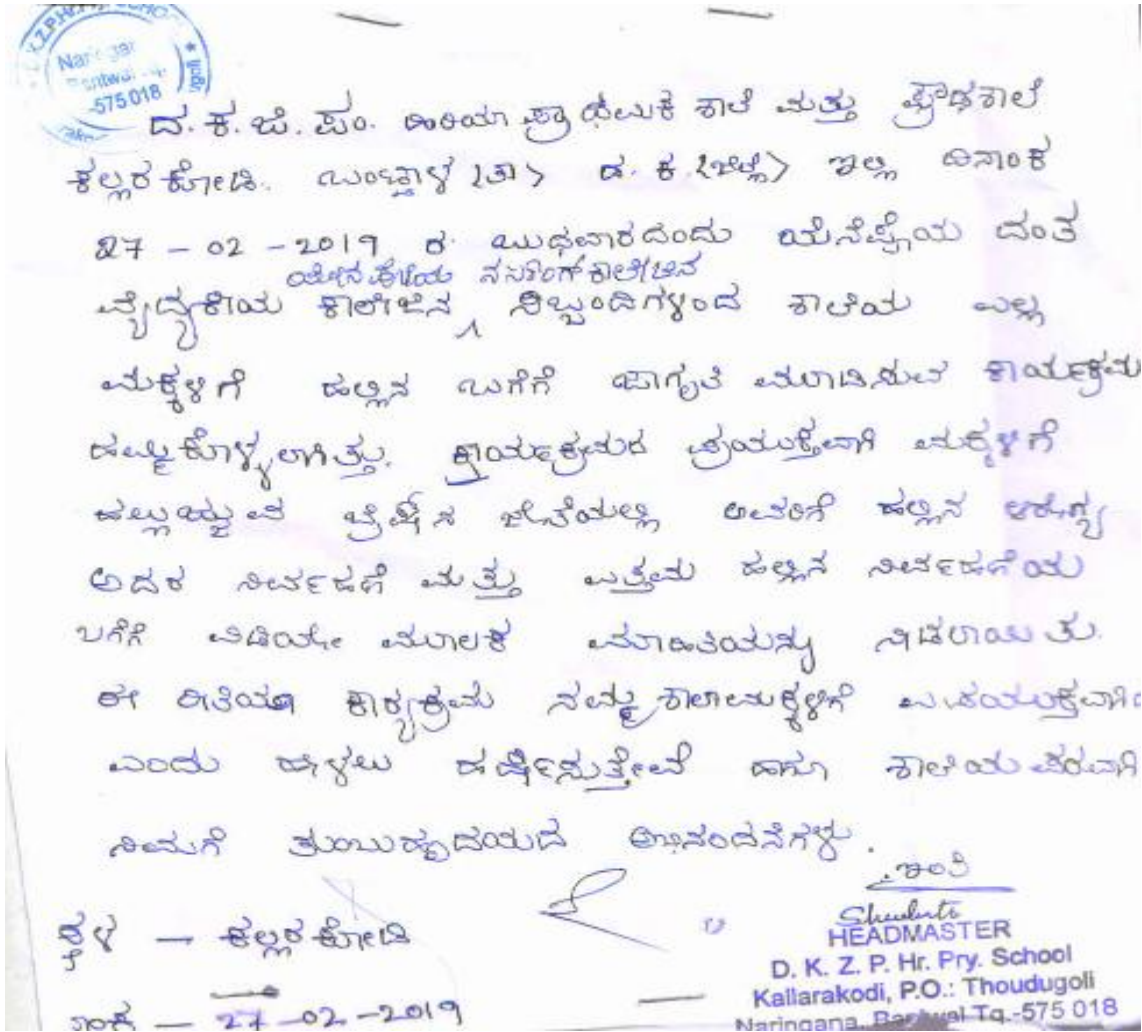 575 018
ದ.ಕ.ಜಿ.ಪಂ. ಹಿರಿಯ ಪ್ರಾಥಮಿಕ ಶಾಲೆ ಮತ್ತು ಪ್ರೌಢಶಾಲೆ
ಕಲ್ಲರಕೋಡಿ. ಬಂಟ್ವಾಳ (ತಾ) ದ.ಕ.(ಜಿಲ್ಲೆ) ಇಲ್ಲಿ ದಿನಾಂಕ
27 - 02 - 2019 ರ ಬುಧವಾರದಂದು ಯೆನೆಪ್ಪೊಯ ದಂತ
ನರ್ಸಿಂಗ್ ಕಾಲೇಜಿನ
ವೈದ್ಯಕೀಯ ಕಾಲೇಜಿನ ಸಿಬ್ಬಂದಿಗಳಿಂದ ಶಾಲೆಯ ಎಲ್ಲ
ಮಕ್ಕಳಿಗೆ ಹಲ್ಲಿನ ಬಗೆಗೆ ಜಾಗೃತಿ ಮೂಡಿಸುವ ಕಾರ್ಯಕ್ರಮ
ಹಮ್ಮಿಕೊಳ್ಳಲಾಗಿತ್ತು. ಕಾರ್ಯಕ್ರಮದ ಪ್ರಯುಕ್ತವಾಗಿ ಮಕ್ಕಳಿಗೆ
ಹಲ್ಲುಜ್ಜುವ ಬ್ರೆಷ್‌ನ ಜೊತೆಯಲ್ಲಿ ಅವರಿಗೆ ಹಲ್ಲಿನ ಆರೋಗ್ಯ
ಅದರ ನಿರ್ವಹಣೆ ಮತ್ತು ಉತ್ತಮ ಹಲ್ಲಿನ ನಿರ್ವಹಣೆಯ
ಬಗೆಗೆ ವಿಡಿಯೋ ಮೂಲಕ ಮಾಹಿತಿಯನ್ನು ನೀಡಲಾಯಿತು.
ಈ ರೀತಿಯ ಕಾರ್ಯಕ್ರಮ ನಮ್ಮ ಶಾಲಾಮಕ್ಕಳಿಗೆ
ಎಂದು ಹೇಳಲು ಹರ್ಷಿಸುತ್ತೇವೆ ಹಾಗೂ ಶಾಲೆಯ ಪರವಾಗಿ
ನಿಮಗೆ ತುಂಬುಹೃದಯದ ಅಭಿನಂದನೆಗಳು.
ಇಂತಿ
HEADMASTER
ಸ್ಥಳ - ಕಲ್ಲರಕೋಡಿ
D. K. Z. P. Hr. Pry. School
Kallarakodi, P.O.: Thoudugoli
27 - 02 - 2019
Naringana, Bantwal Tq.-575 018